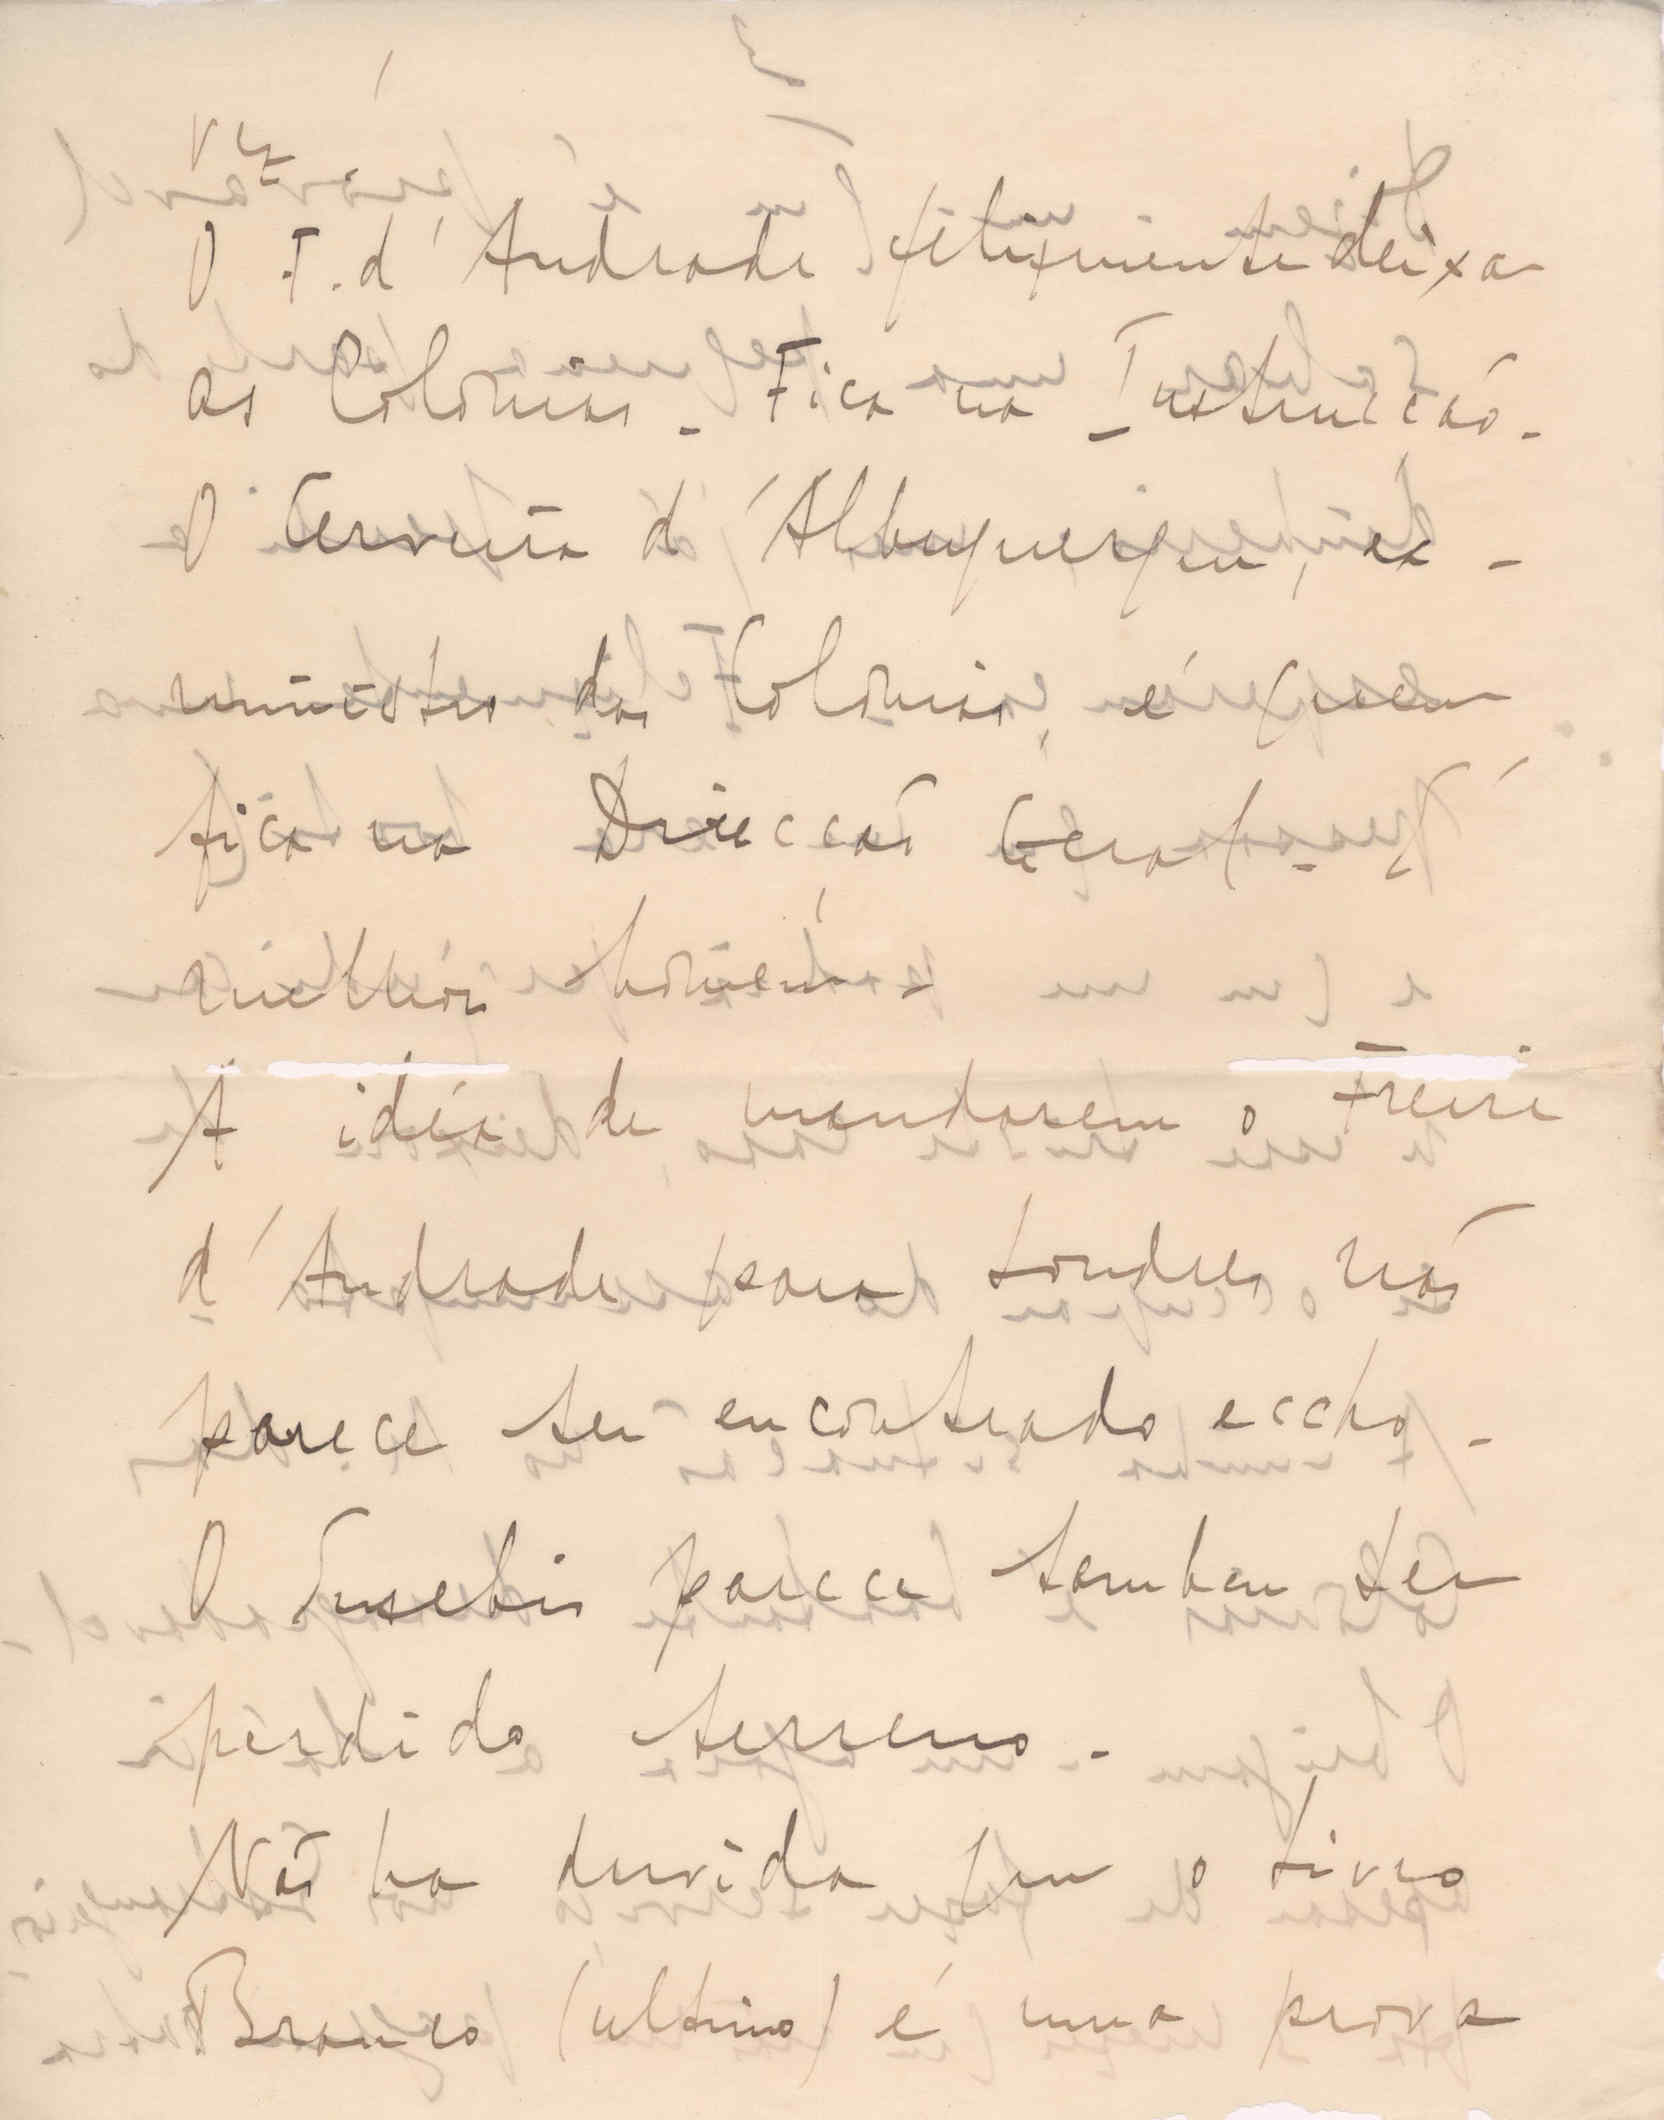 O F. d'Andrade felizmente deixa
as Colonias. Fica na Instrucção.
O Cerveira d'Albuquerque, ex-
ministro das Colonias, é quem
fica na Direcção Geral. É
melhor homem.
A idéa de mandarem o Freire
d'Andrade para Londres não
parece ter encontrado eccho.
O Eusebio parece tambem ter
perdido terreno.
Não ha duvida que o Livro
Branco (ultimo) é uma prova